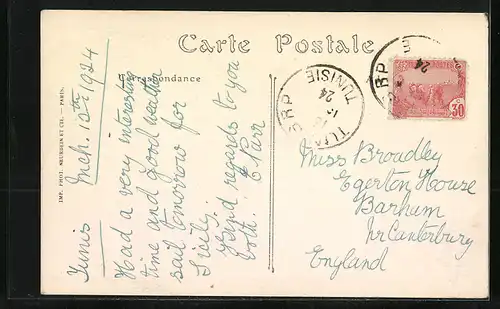 Carte Postale
Correspondance
IMP. PHOT. NEURDEIN ET CIE. — PARIS.
Tunis Mch. 13th 1924
Had a very interesting
time and good weather
sail tomorrow for
Sicily.
Kind regards to you
both.
TUNISIE
24
RP
TUNISIE
24
RP
30
Miss Broadley
Egerton House
Barham
Nr Canterbury
England